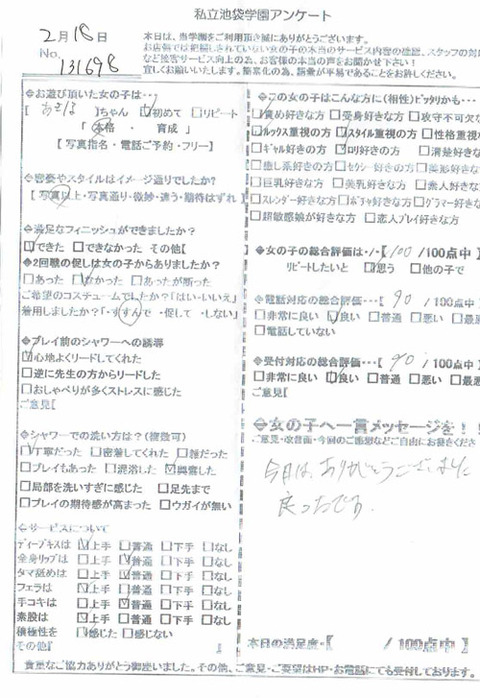 私立池袋学園アンケート
2月18日
No. 131698
本日は、当学園をご利用頂き誠にありがとうございます。
◇お遊び頂いた女の子は…
[ あさほ ]ちゃん ☑初めて □リピート
「 本格 ・ 育成 」
【 写真指名・電話ご予約・フリー】
◇容姿やスタイルはイメージ通りでしたか?
【 写真以上・写真通り・微妙・違う・期待はずれ 】
◇満足なフィニッシュができましたか?
☑できた □できなかった その他【
◇2回戦の促しは女の子からありましたか?
□あった ☑なかった □あったが断った
ご希望のコスチュームでしたか?「はい・いいえ」
着用しましたか?「・すすんで ・促して ・しない」
◇プレイ前のシャワーへの誘導
☑心地よくリードしてくれた
□逆に先生の方からリードした
□おしゃべりが多くストレスに感じた
ご意見[
◇シャワーでの洗い方は?(複数可)
☑丁寧だった □密着してくれた □雑だった
□プレイもあった □混浴した ☑興奮した
□局部を洗いすぎに感じた □足先まで
□プレイの期待感が高まった □ウガイが無い
◇サービスについて
ディープキスは ☑上手 □普通 □下手 □なし
全身リップは □上手 ☑普通 □下手 □なし
タマ舐めは □上手 ☑普通 □下手 □なし
フェラは ☑上手 □普通 □下手 □なし
手コキは □上手 ☑普通 □下手 □なし
素股は ☑上手 □普通 □下手 □なし
積極性を ☑感じた □感じない
その他【
◇この女の子はこんな方に(相性)ピッタリかも…
□責め好きな方 □受身好きな方 □攻守不可欠な
□ルックス重視の方 ☑スタイル重視の方 □性格重視
□ギャル好きの方 ☑ロリ好きの方 □清楚好きな
□癒し系好きの方 □セクシー好きの方 □美形好きな
□巨乳好きな方 □美乳好きな方 □素人好きな
□スレンダー好きな方 □ポチャ好きな方 □グラマー好きな
□超敏感娘が好きな方 □恋人プレイ好きな方
◇女の子の総合評価は・/・【 100 /100点中
リピートしたいと ☑思う □他の子で
◇電話対応の総合評価…【 90 /100点中
□非常に良い ☑良い □普通 □悪い □最悪
□電話していない
◇受付対応の総合評価…【 90 /100点中
□非常に良い ☑良い □普通 □悪い □最悪
ご意見[
◇女の子へ一言メッセージを!!
ご意見・改善面・今回のご感想などご自由にお書きくださ
今日は、ありがとうございました
良かったです。
本日の満足度・【 /100点中】
貴重なご協力ありがとう御座いました。その他、ご意見・ご要望はHP・お電話にても受付しております。